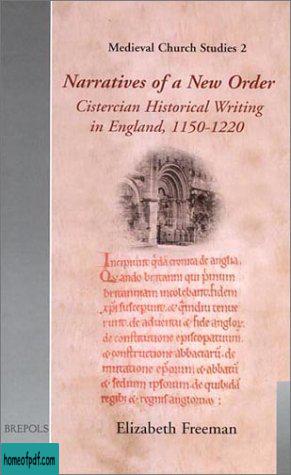 Medieval Church Studies 2
Narratives of a New Order
Cistercian Historical Writing
in England, 1150-1220
Incipiunt q̄dā cronica de anglia.
Quando britanni qui primum
britanniam incolebant. fidem
xp̄i susceperunt. & q̄mdiu tenue
runt. de adventu & fide anglor̄.
de constructione episcopatuum
& constructione abbaciarū. de
mutatione eorum & abbatū
& sedium ipsorum. de quibusdā
regibȝ & regnis anglorum.
BREPOLS
Elizabeth Freeman
homeofpdf.com